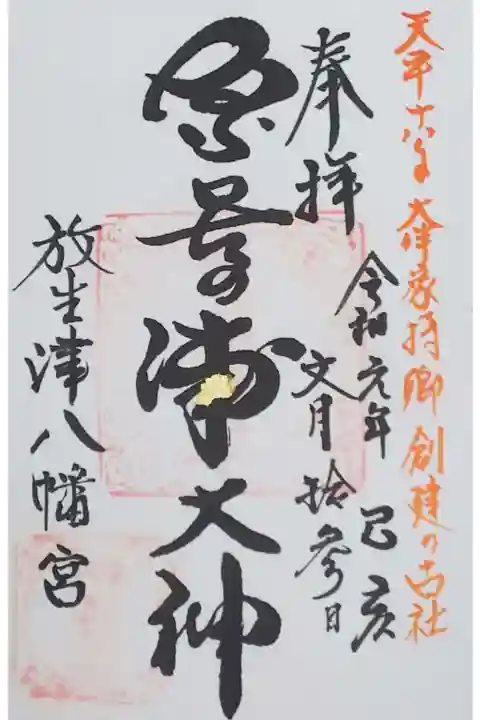 天平十八年 大伴家持卿 創建の古社
奉拝
令和元年 己亥
文月拾参日
奈呉の浦大神
放生津八幡宮